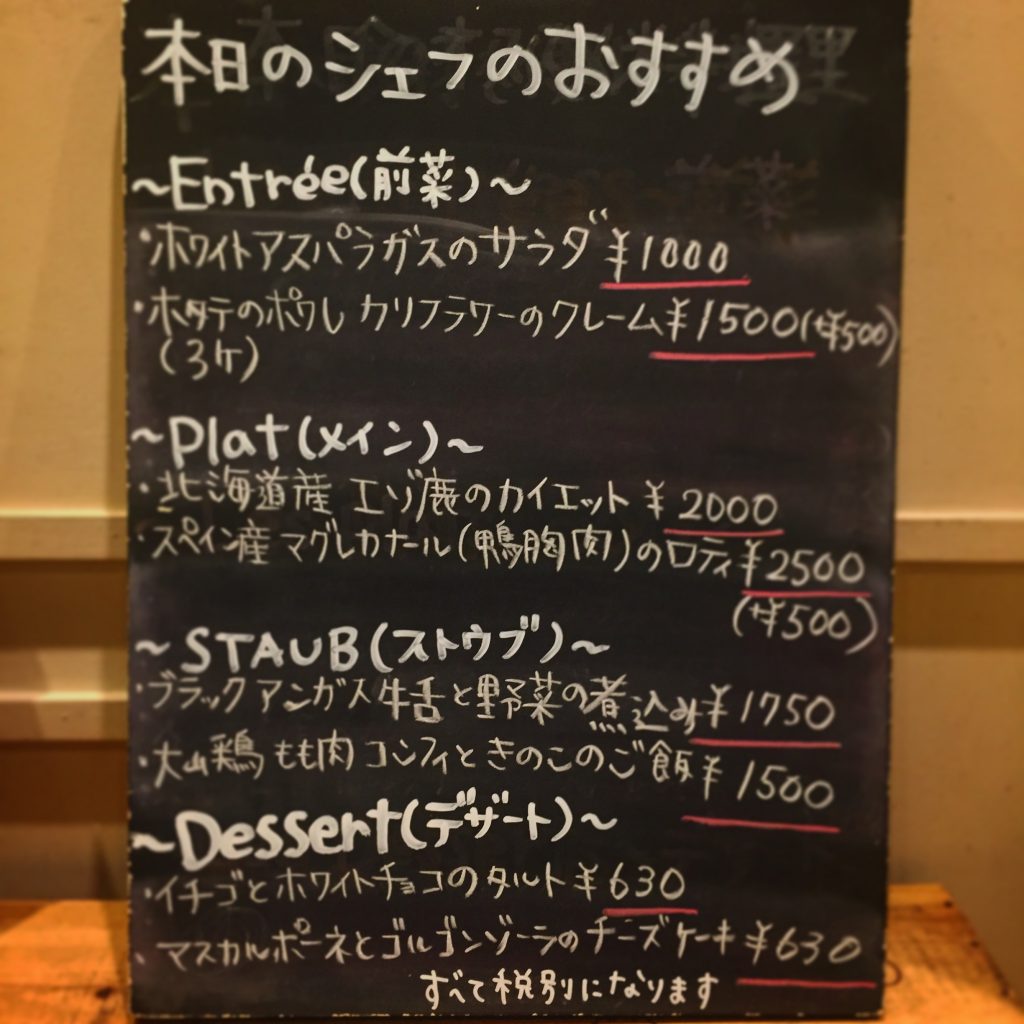 本日のシェフのおすすめ
~Entrée(前菜)~
・ホワイトアスパラガスのサラダ ¥1000
・ホタテのポワレ カリフラワーのクレーム ¥1500(+¥500)
(3ケ)
~Plat(メイン)~
・北海道産 エゾ鹿のカイエット ¥2000
・スペイン産 マグレカナール(鴨胸肉)のロティ ¥2500
(+¥500)
~STAUB(ストウブ)~
・ブラックアンガス牛舌と野菜の煮込み ¥1750
・大山鶏もも肉 コンフィときのこのご飯 ¥1500
~Dessert(デザート)~
・イチゴとホワイトチョコのタルト ¥630
・マスカルポーネとゴルゴンゾーラのチーズケーキ ¥630
すべて税別になります